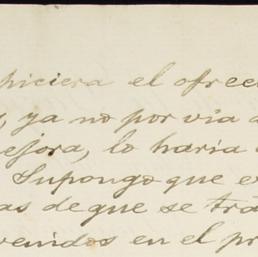 hiciera el ofrec
, ya no por vía d
ejora, lo haría
Supongo que e
as de que se tra
venidos en el pr